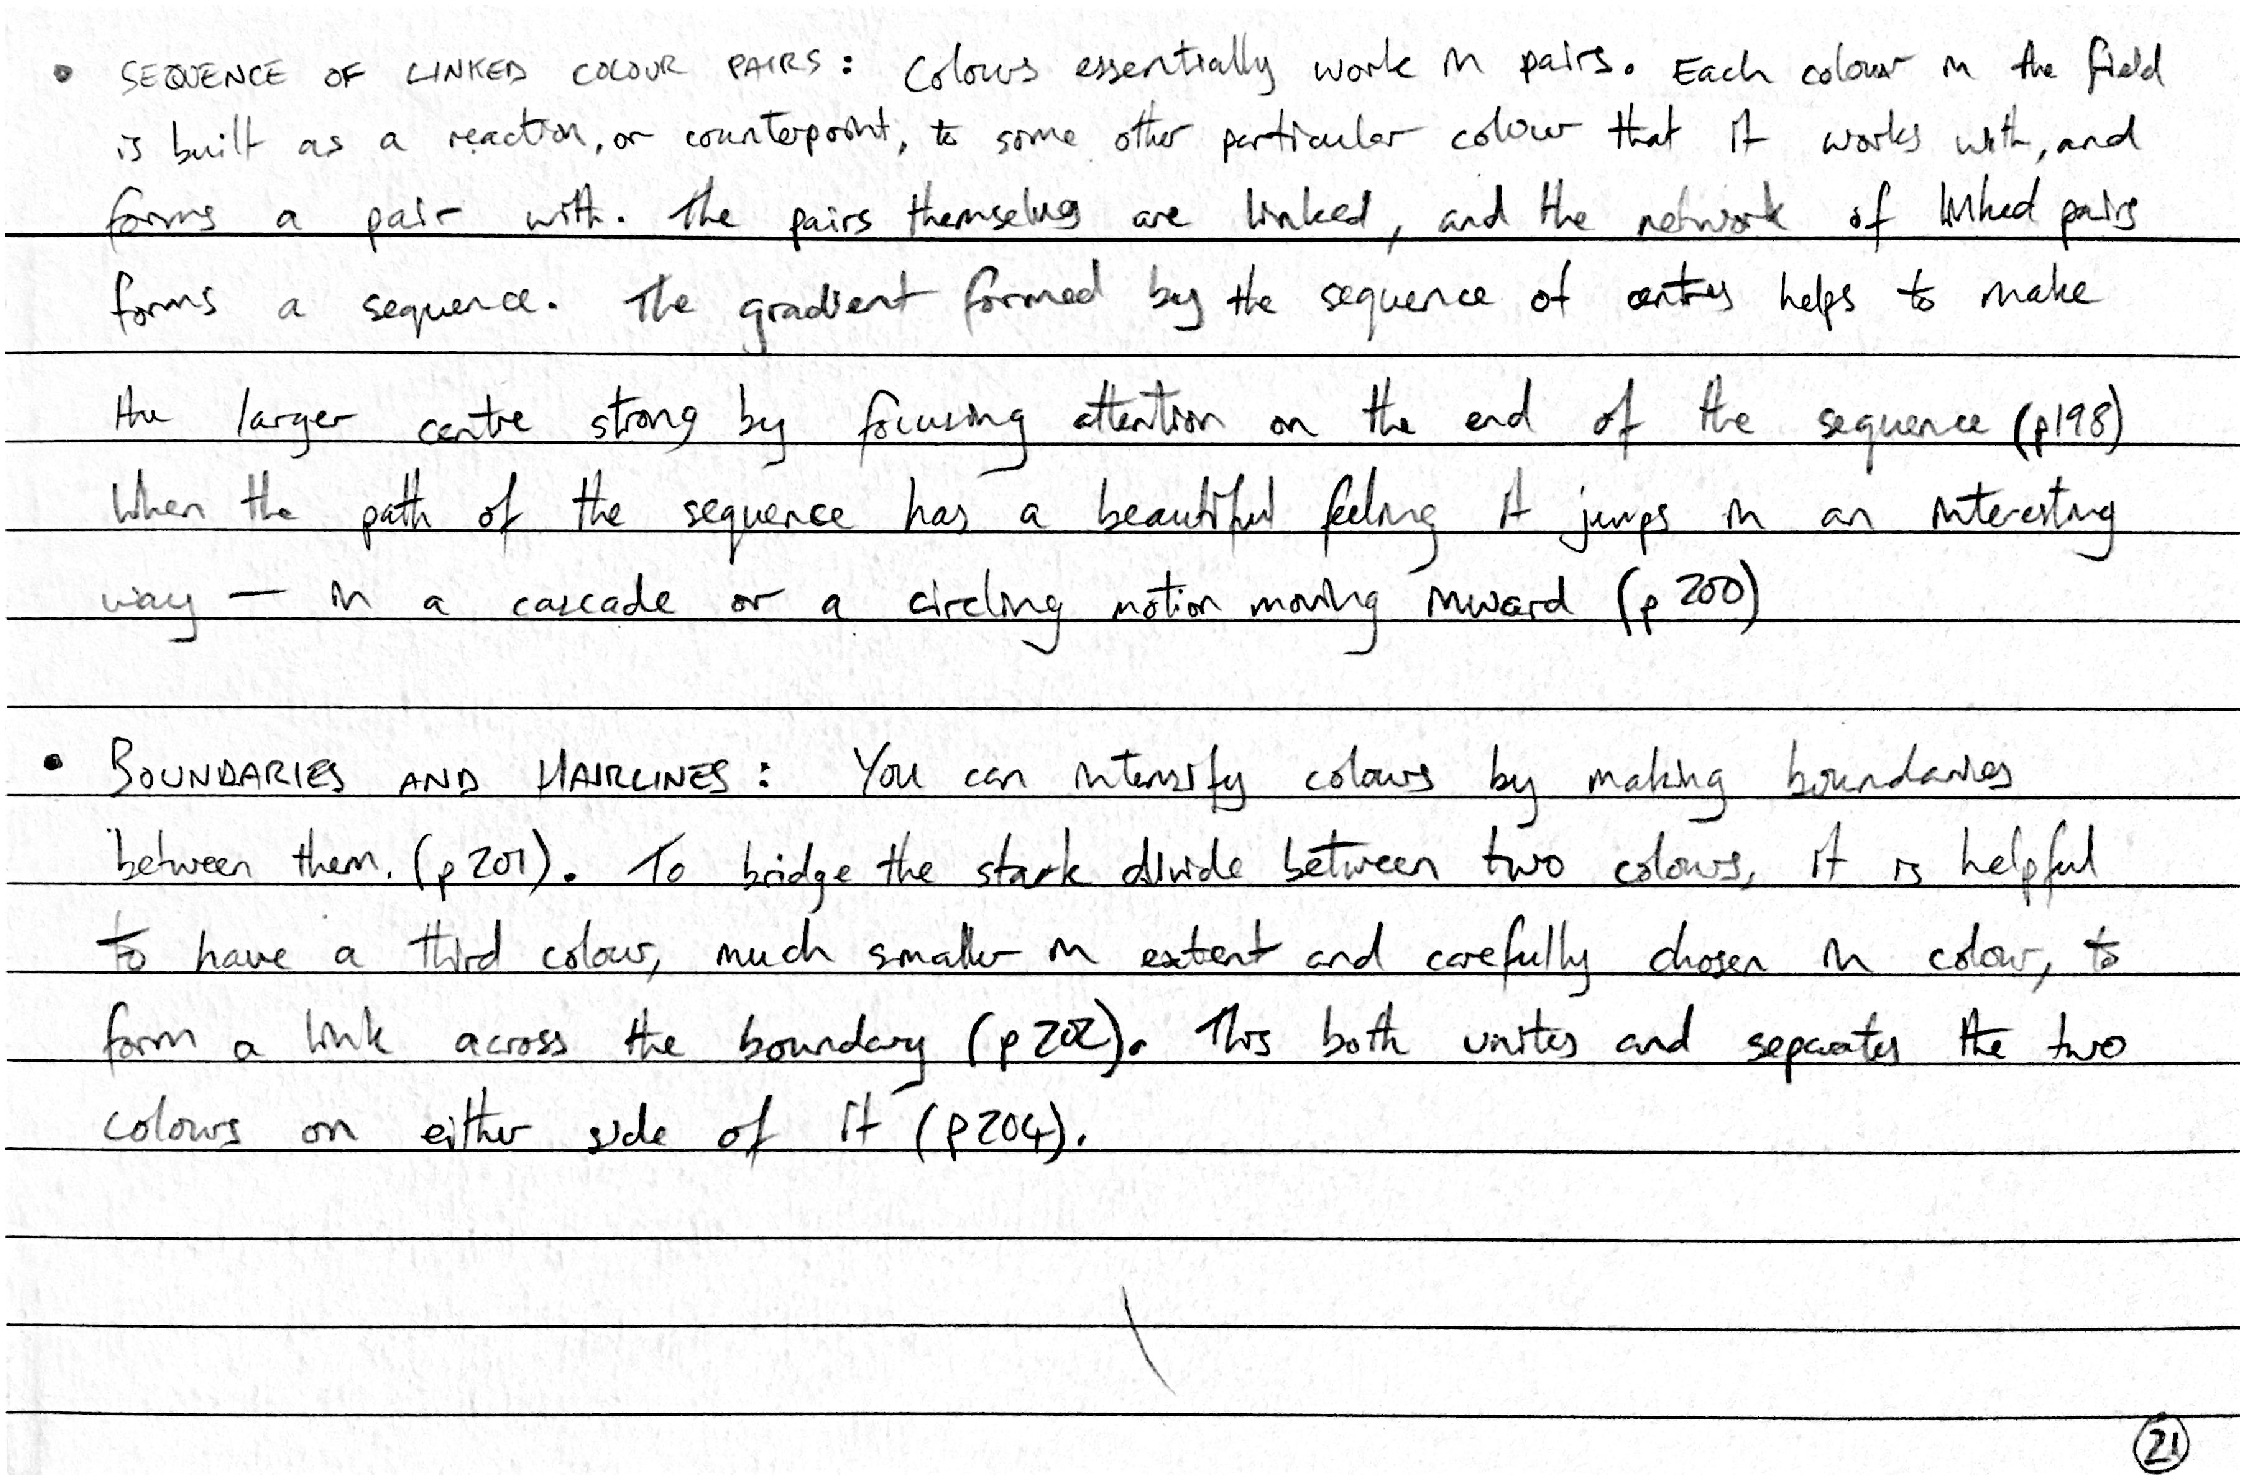 • SEQUENCE OF LINKED COLOUR PAIRS: Colours essentially work in pairs. Each colour in the field
is built as a reaction, or counterpoint, to some other particular colour that it works with, and
forms a pair with. The pairs themselves are linked, and the network of linked pairs
forms a sequence. The gradient formed by the sequence of centres helps to make
the larger centre strong by focusing attention on the end of the sequence (p198)
When the path of the sequence has a beautiful feeling it jumps in an interesting
way — in a cascade or a circling motion moving inward (p 200)
• BOUNDARIES AND HAIRLINES: You can intensify colours by making boundaries
between them. (p 201). To bridge the stark divide between two colours, it is helpful
to have a third colour, much smaller in extent and carefully chosen in colour, to
form a link across the boundary (p 202). This both unites and separates the two
colours on either side of it (p204).
21